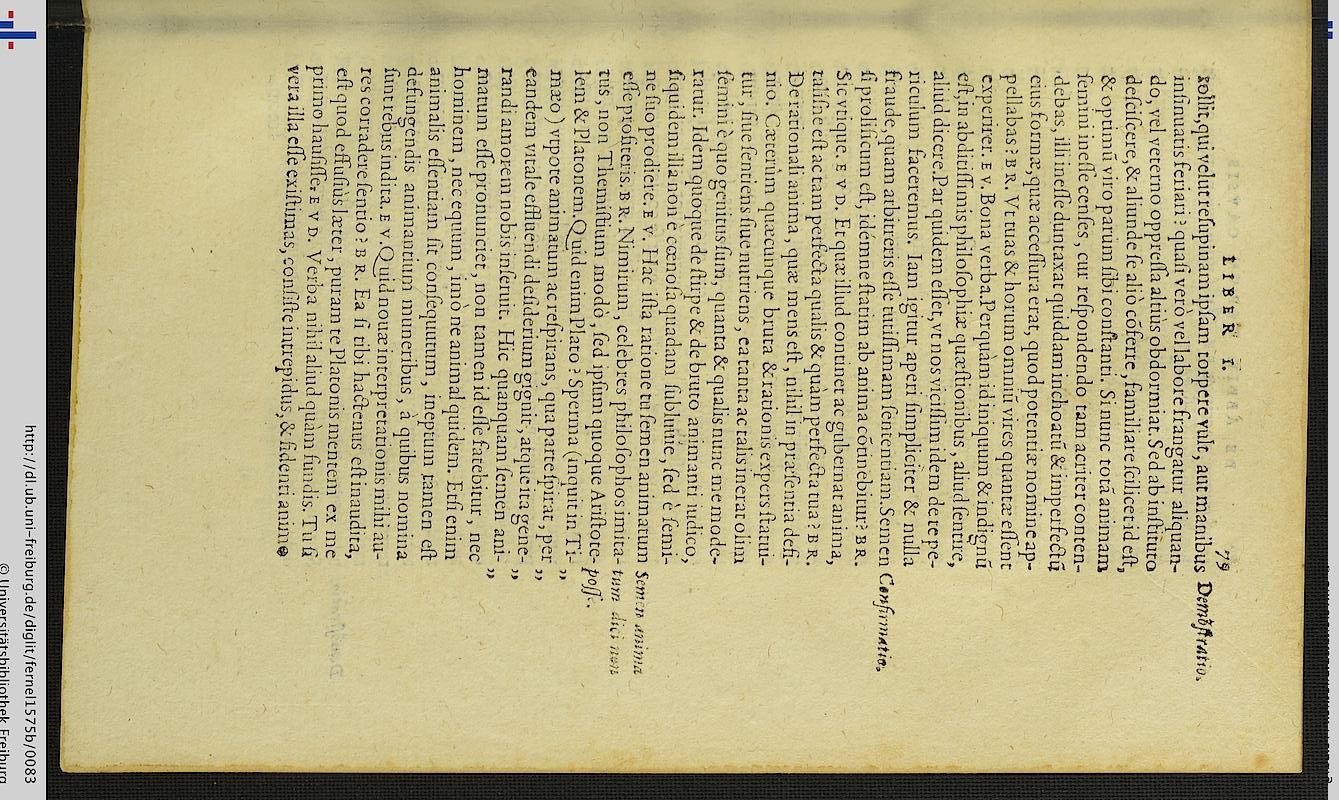 LIBER I. 79
tollit, qui velut resupinam ipsam torpere vult, aut manibus Demōstratio.
insinuatis feriari? quasi verò vel labore frangatur aliquan-
do, vel veterno oppressa altius obdormiat. Sed ab instituto
desciscere, & aliunde se aliò cōferre, familiare scilicet id est,
& optimū viro parum sibi constanti. Si nunc totā animam
semini inesse censes, cur respondendo tam acriter conten-
debas, illi inesse duntaxat quiddam inchoatū & imperfectū
eius formæ, quæ accessura erat, quod potentiæ nomine ap-
pellabas? BR. Vt tuas & horum omniū vires quantæ essent
experirer. EV. Bona verba. Perquàm id iniquum & indignū
est, in abditissimis philosophiæ quæstionibus, aliud sentire,
aliud dicere. Par quidem esset, vt nos vicissim idem de te pe-
riculum faceremus. Iam igitur aperi simpliciter & nulla
fraude, quam arbitreris esse tutissimam sententiam. Semen Confirmatio.
si prolificum est, idémne statim ab anima cōtinebitur? BR.
Sic vtique. EVD. Et quæ illud continet ac gubernat anima,
talisne est ac tam perfecta qualis & quàm perfecta tua? BR.
De rationali anima, quæ mens est, nihil in præsentia defi-
nio. Cæterùm quæcunque bruta & rationis expers statui-
tur, siue sentiens siue nutriens, ea tanta ac talis inerat olim
semini è quo genitus sum, quanta & qualis nunc me mode-
ratur. Idem quoque de stirpe & de bruto animanti iudico,
siquidem illa non è cœnosa quadam subluuie, sed è semi-
ne suo prodiere. EV. Hac ista ratione tu semen animatum Semen anima
esse profiteris. BR. Nimirum, celebres philosophos imita- tum dici non
tus, non Themistium modò, sed ipsum quoque Aristote- posse.
lem & Platonem. Quid enim Plato? Sperma (inquit in Ti- „
mæo) vtpote animatum ac respirans, qua parte spirat, per „
eandem vitale effluendi desiderium gignit, atque ita gene- „
randi amorem nobis inseruit. Hic quanquam semen ani- „
matum esse pronunciet, non tamen id esse fatebitur, nec „
hominem, nec equum, imò ne animal quidem. Etsi enim
animalis essentiam sit consequutum, ineptum tamen est
defungendis animantium muneribus, à quibus nomina
sunt rebus indita. EV. Quid nouæ interpretationis mihi au-
res corradere sentio? BR. Ea si tibi hactenus est inaudita,
est quod effusius læter, puram te Platonis mentem ex me
primo hausisse. EVD. Verba nihil aliud quàm fundis. Tu si
vera illa esse existimas, consiste intrepidus, & fidenti animo
http://dl.ub.uni-freiburg.de/diglit/fernel1575b/0083
© Universitätsbibliothek Freiburg